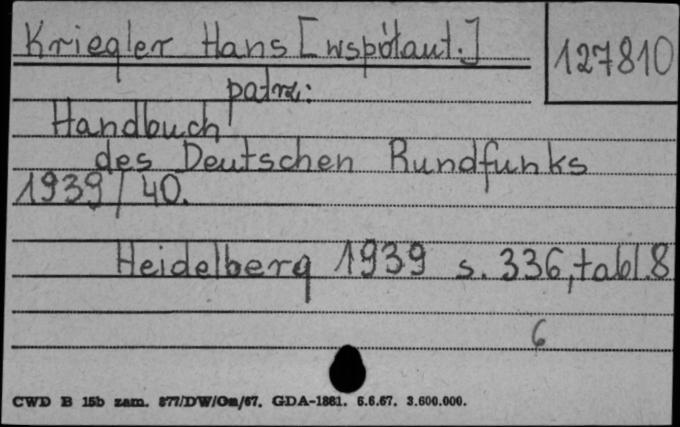 Kriegler Hans [współaut.]
127810
patrz:
Handbuch
des Deutschen Rundfunks
1939/40.
Heidelberg 1939 s. 336, tabl. 8
6
CWD B 15b zam. 877/DW/Om/67. GDA-1881. 6.6.67. 3.600.000.